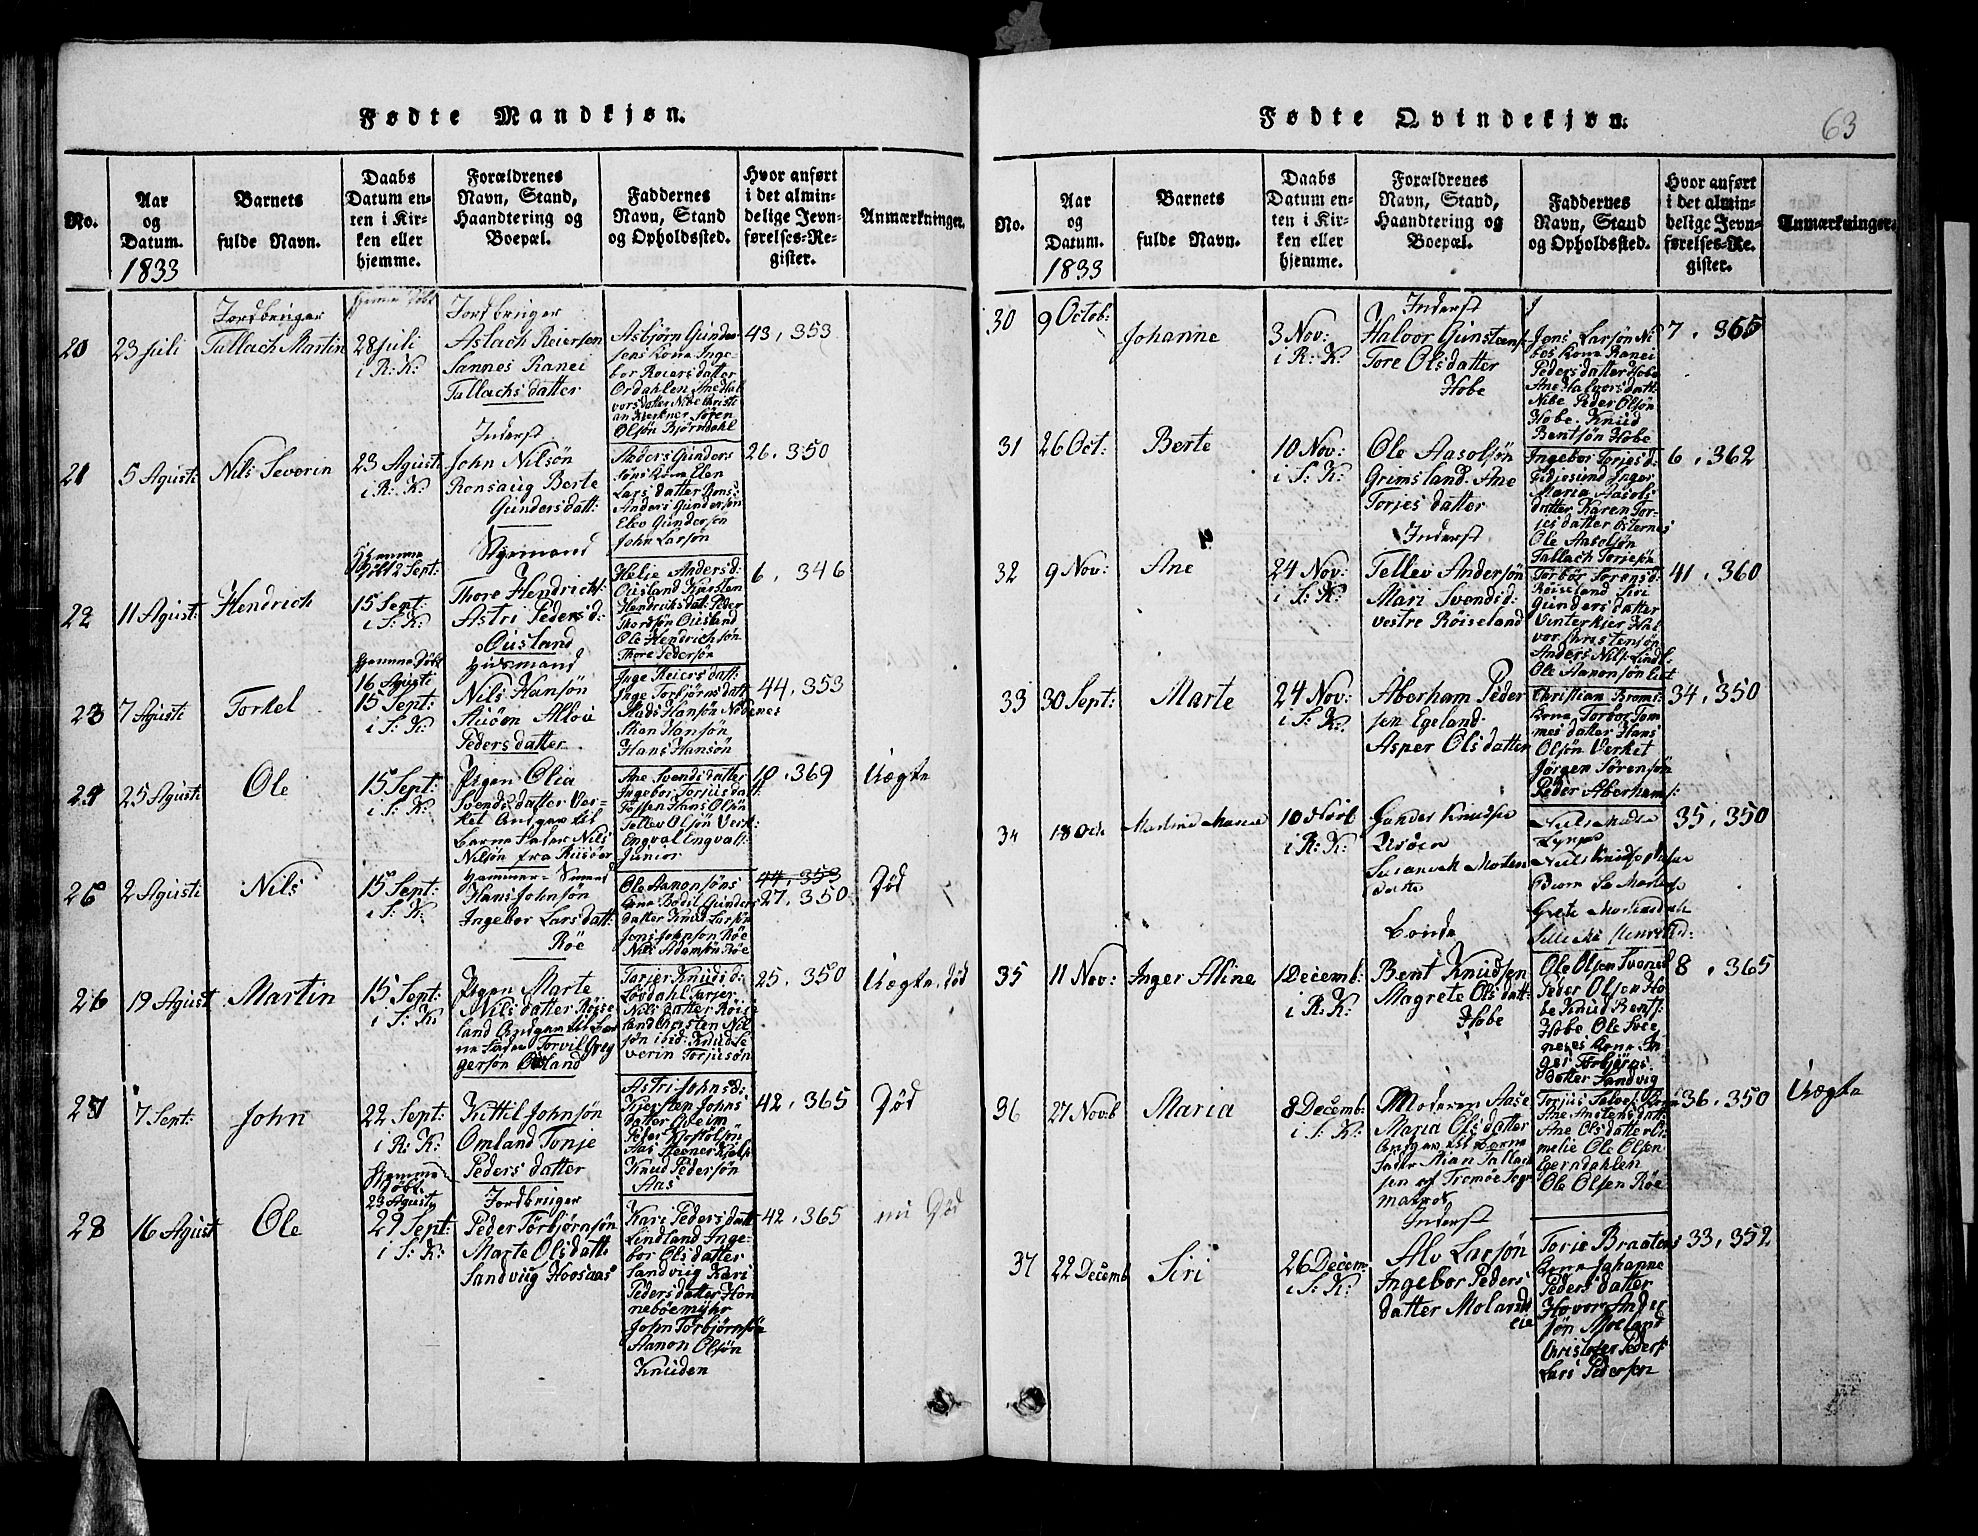 Fødte Mandkjøn.
No.
Aar
og
Datum.
1833
Barnets
fulde Navn.
Daabs
Datum en-
ten i Kir-
ken eller
hjemme.
Forældrenes
Navn, Stand,
Haandtering og
Boepæl.
Faddernes
Navn, Stand
og Opholdssted.
Hvor anført
i det almin-
delige Jevn-
førelses-Re-
gister.
Anmærkninger.
20
23 juli
Tallach Martin
28 juli
i R: K:
Jordbruger
Aslach Reiersen
Sannes Ranei
Tallachsdatter
Asbjørn Gunder
sens Kone Inge
bor Reiersdatter
Ordahlen Ane Hal
vorsdatter Nibe Christi
an Kierkner Søren
Olsøn Bjørndahl
43, 353
21
5 Agusti
Nils Severin
23 Agusti
i R: K:
Inderst
John Nilsøn
Ronsaug Berte
Gundersdatt:
Anders Gunders
søns Kone Elen
Larsdatter Rons:
Anders Gundersøn
Elev Gundersøn
John Larsøn
26, 350
22
11 Agust:
Hendrich
Hjemme
døbt 2 Sept:
15 Sept:
i S: K:
Styrmand
Thore Hendrichs:
Astri Peders d:
Ousland
Helie Anders d:
Ousland Kirsten
Hendrichsdat: Peder
Thordsøn Ousland
Ole Hendrichsøn
Thore Pedersøn
6, 346
23
7 Agusti
Torkel
Hjemme døbt
16 Agusti
15 Sept:
i S: K:
Husmand
Nils Hansøn
Pedersdatter
Inge Reiersdatt:
Inge Torbjørnsdatt:
Mads Hansøn
Hans Hansøn
44, 353
24
25 Agusti
Ole
15 Sept:
i S: K:
Pigen Olea
Svendsdatter Ver-
ket Angiven til
barne fader Nils
Nilsøn fra Riisøer
Ane Svendsdatter
Ingebor Torjusdatt:
Fossen Hans Olsøn
Tellev Olsøn Verk:
Engval Engvals:
Junior
10, 369
Uægte
25
2 Agusti
Nils
15 Sept:
i S: K:
Hammer-Smed
Hans Johnsøn
Ingebor Larsdatt:
Røe
Ole Aanonsøns
Kone Bodil Gunders
datter Knud Larsøn
Jens Johnsøn Røe
Nils Adamsøn Røe
44, 353
27, 350
Død
26
19 Agust
Martin
15 Sept:
i S: K:
Pigen Marte
Nilsdatter Røise
land Angiven til bar
ne fader Torvil Greg
gersøn Ousland
Tarjer Knuds d:
Løvdahl
Nilsdatter Røis
land Christen Nil
søn ibid: Knud Se
verin Torjusøn
25, 350
Uægte, Død
27
7 Sept:
John
22 Sept:
i R: K:
Kittil Johnsøn
Omland Tonje
Pedersdatter
Astri Johns d:
Kjersten Johns
datter
Knud Pedersøn
Aas
42, 365
Død
28
16 Agust
Ole
Hjemme
døbt
23 Agusty
29 Sept:
i S: K:
Jordbruger
Peder Torbjørnsøn
Marte Olsdatt:
Sandviig Hoosaas
Kari Pedersdatt:
Lindland Inge-
bor Olsdatter
Sandviig Kari
Pedersdatter Hon
nebøemyhr
John Torbjørnsøn
Aanon Olsøn
Knuden
42, 365
Død
Fødte Qvindekjøn.
63
No.
Aar
og
Datum.
1833
Barnets
fulde Navn.
Daabs
Datum en-
ten i Kir-
ken eller
hjemme.
Forældrenes
Navn, Stand,
Haandtering og
Boepæl.
Faddernes
Navn, Stand
og Opholdssted.
Hvor anført
i det almin-
delige Jevn-
førelses-Re-
gister.
Anmærkninger.
30
9 Octob:
Johanne
3 Nov:
i R: K:
Inderst
Halvor Gunstens:
Tore Olsdatter
Hobe
Jens Larsøn Ni
bes Kone Ranei
Pedersdatter Hobe
Ane Halvorsdatt:
Nibe Peder Olsøn
Hobe. Knud
Bentsøn Hobe
7, 365
31
26 Oct:
Berte
10 Nov:
i S: K:
Ole Aasolsøn
Grimsland. Ane
Torjesdatter
Ingebor Torjes d:
Inger
Maria Aasols
datter Karen Tor-
jesdatter Østernes
Ole Aasolsøn
Tallach Torjesøn
6, 362
32
9 Nov:
Ane
24 Nov:
i S: K:
Inderst
Tellev Andersøn
Mari Svends d:
vestre Røiseland
Torbor Sørens d:
Røiseland Siri
Gundersdatter
Vinterkier Hal
vor Christensøn
Anders Nils: Lindl
Ole Aanonsøn Liet
41, 360
33
30 Sept:
Marte
24 Nov:
i S: K:
Aberham Peder
sen Egeland.
Asper Olsdatter
Christian Broms:
Kone Torbor Tom
mesdatter Hans
Olsøn Verket
Jørgen Sørensøn
Peder Aberhams:
34, 350
34
18 Oct
10 Novb
i R: K:
Gunder Knudsen
Risøen
Susanna Morten
datter
Niels Madsen
Lynge
Niels Knudsen
Grete Mortensdatt
35, 350
35
11 Nov:
Inger Aline
1 Decemb:
i R: K:
Bonde
Bent Knudsen
Magrete Olsdatt:
Hobe
Ole Olsen
Peder Olsen Ho
be Knud Bents:
Hobe. Ole Sve
neses Kone In
ger Torbjørns
datter Sandvig
8, 365
36
27 Novb
Maria
8 Decemb:
i S: K:
Moderen Aase
Maria Olsdatter
Angiven til barne
fader Stian Tallach
sen af Tromøe Sogn
matros
Torjus Salves: Kone
Ane Anstensdatt:
Ane Olsdatter
melie Ole Olsen
Egerndahlen
Ole Olsen Røe
36, 350
Uægte
37
22 Decemb
Siri
26 Decem
i S: K:
Inderst
Alv Larsøn
Ingebor Peders
datter Molands
eie
Torje Braatens
Kone Johanne
Pedersdatter
Hovor Ander
søn Moland
Christofer Peders:
Lars Pedersen
33, 352